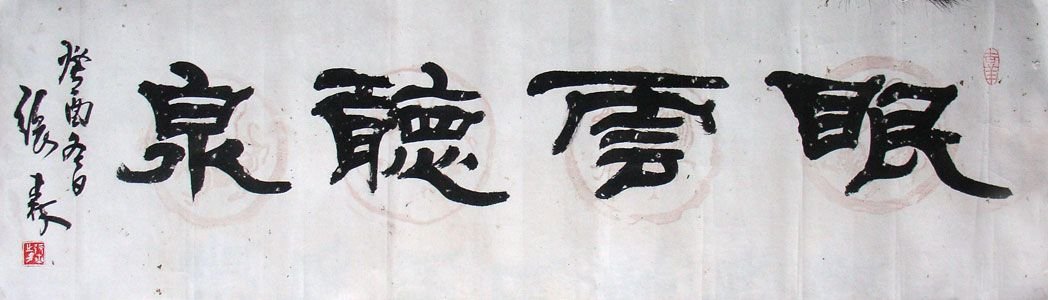 眠雲聽泉
癸酉冬日
張森